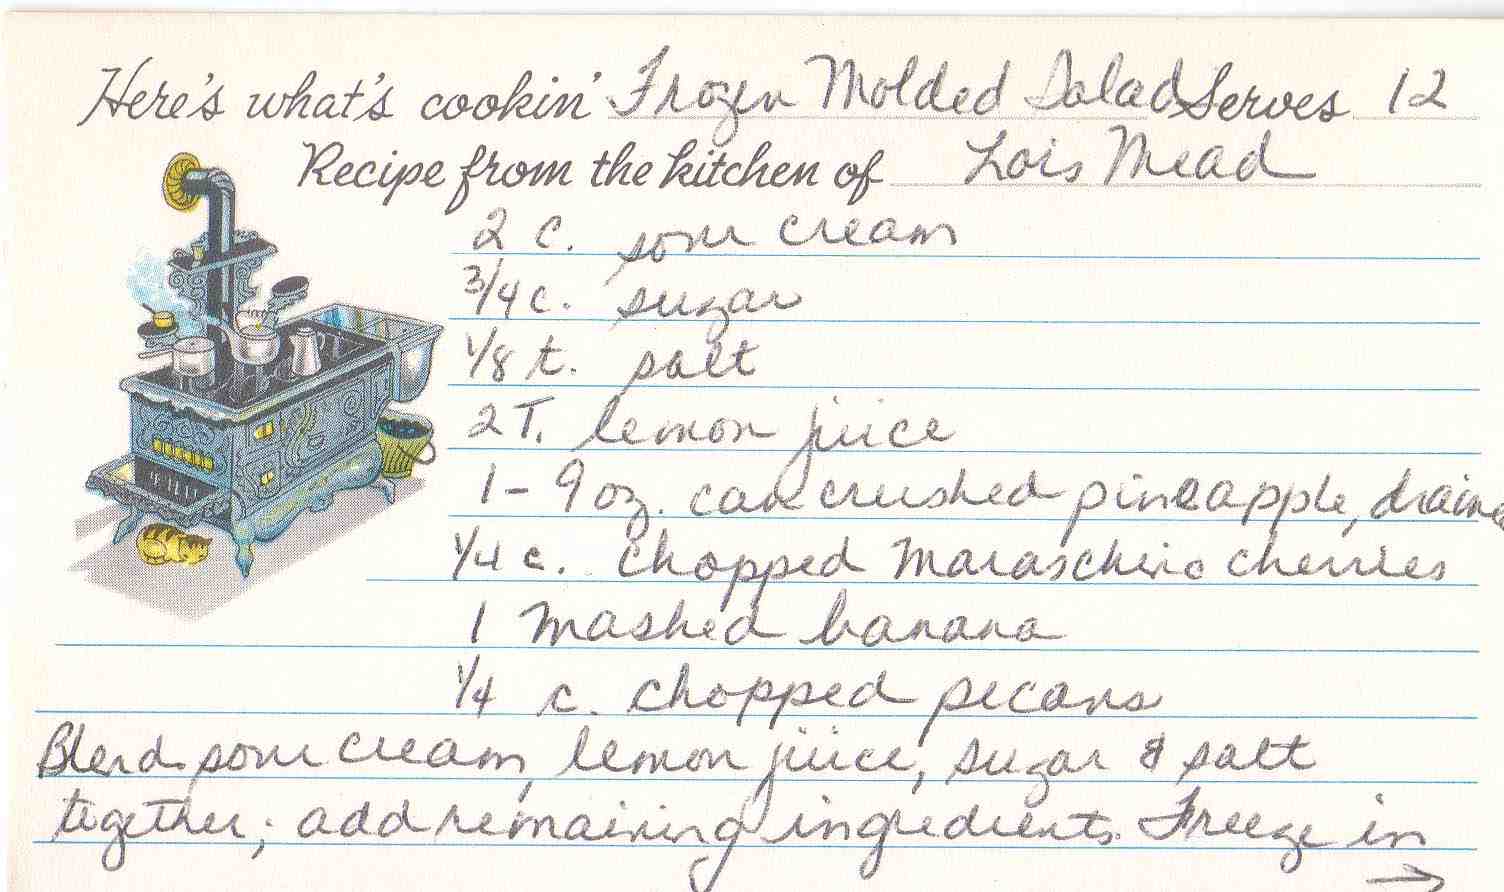 Here's what's cookin' Frozen Molded Salad Serves 12
Recipe from the kitchen of Lois Mead
2 c. sour cream
3/4 c. sugar
1/8 t. salt
2 T. lemon juice
1 - 9 oz. can crushed pineapple, draine
1/4 c. chopped Maraschino cherries
1 mashed banana
1/4 c. chopped pecans
Blend sour cream, lemon juice, sugar & salt
together; add remaining ingredients. Freeze in
→